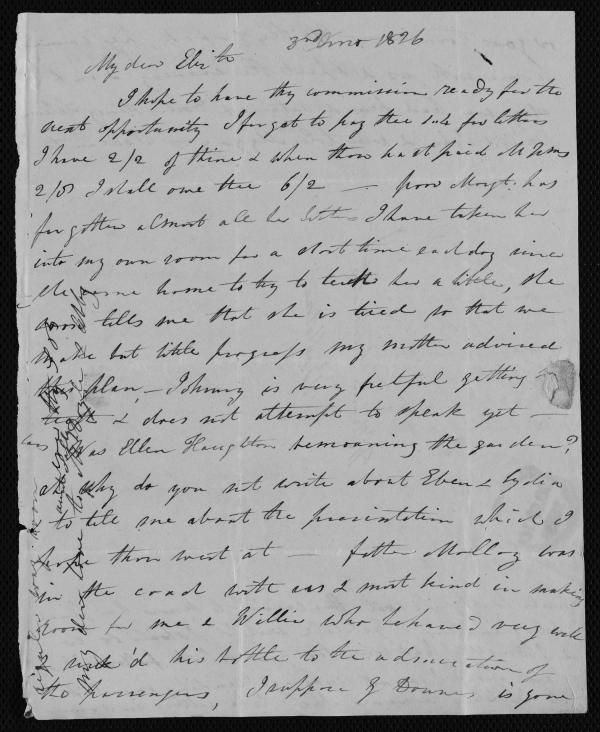 3rd mo 1826
My dear Eliz th
I hope to have thy commission ready for the
next opportunity I forgot to pay thee for letters
I have 2/2 of thine & when thou hast paid
I shall owe thee 6/2 — poor Margt. has
forgotten almost all her letters I have taken her
into my own room for a short time each day since
she came home to try to teach her a little, she
soon tells me that she is tired so that we
make but little progress my mother advised
this plan, — Johnny is very fretful getting
teeth & does not attempt to speak yet —
Was Ellen Haughton bemoaning the garden?
& why do you not write about Eben & Lydia
to tell me about the presentation which I
hope thou went at — father Malloy was
in the coach with us & most kind in making
room for me & Willie who behaved very well
& suck'd his bottle to the admiration of
the passengers, I suppose Downes is gone
my dear love to